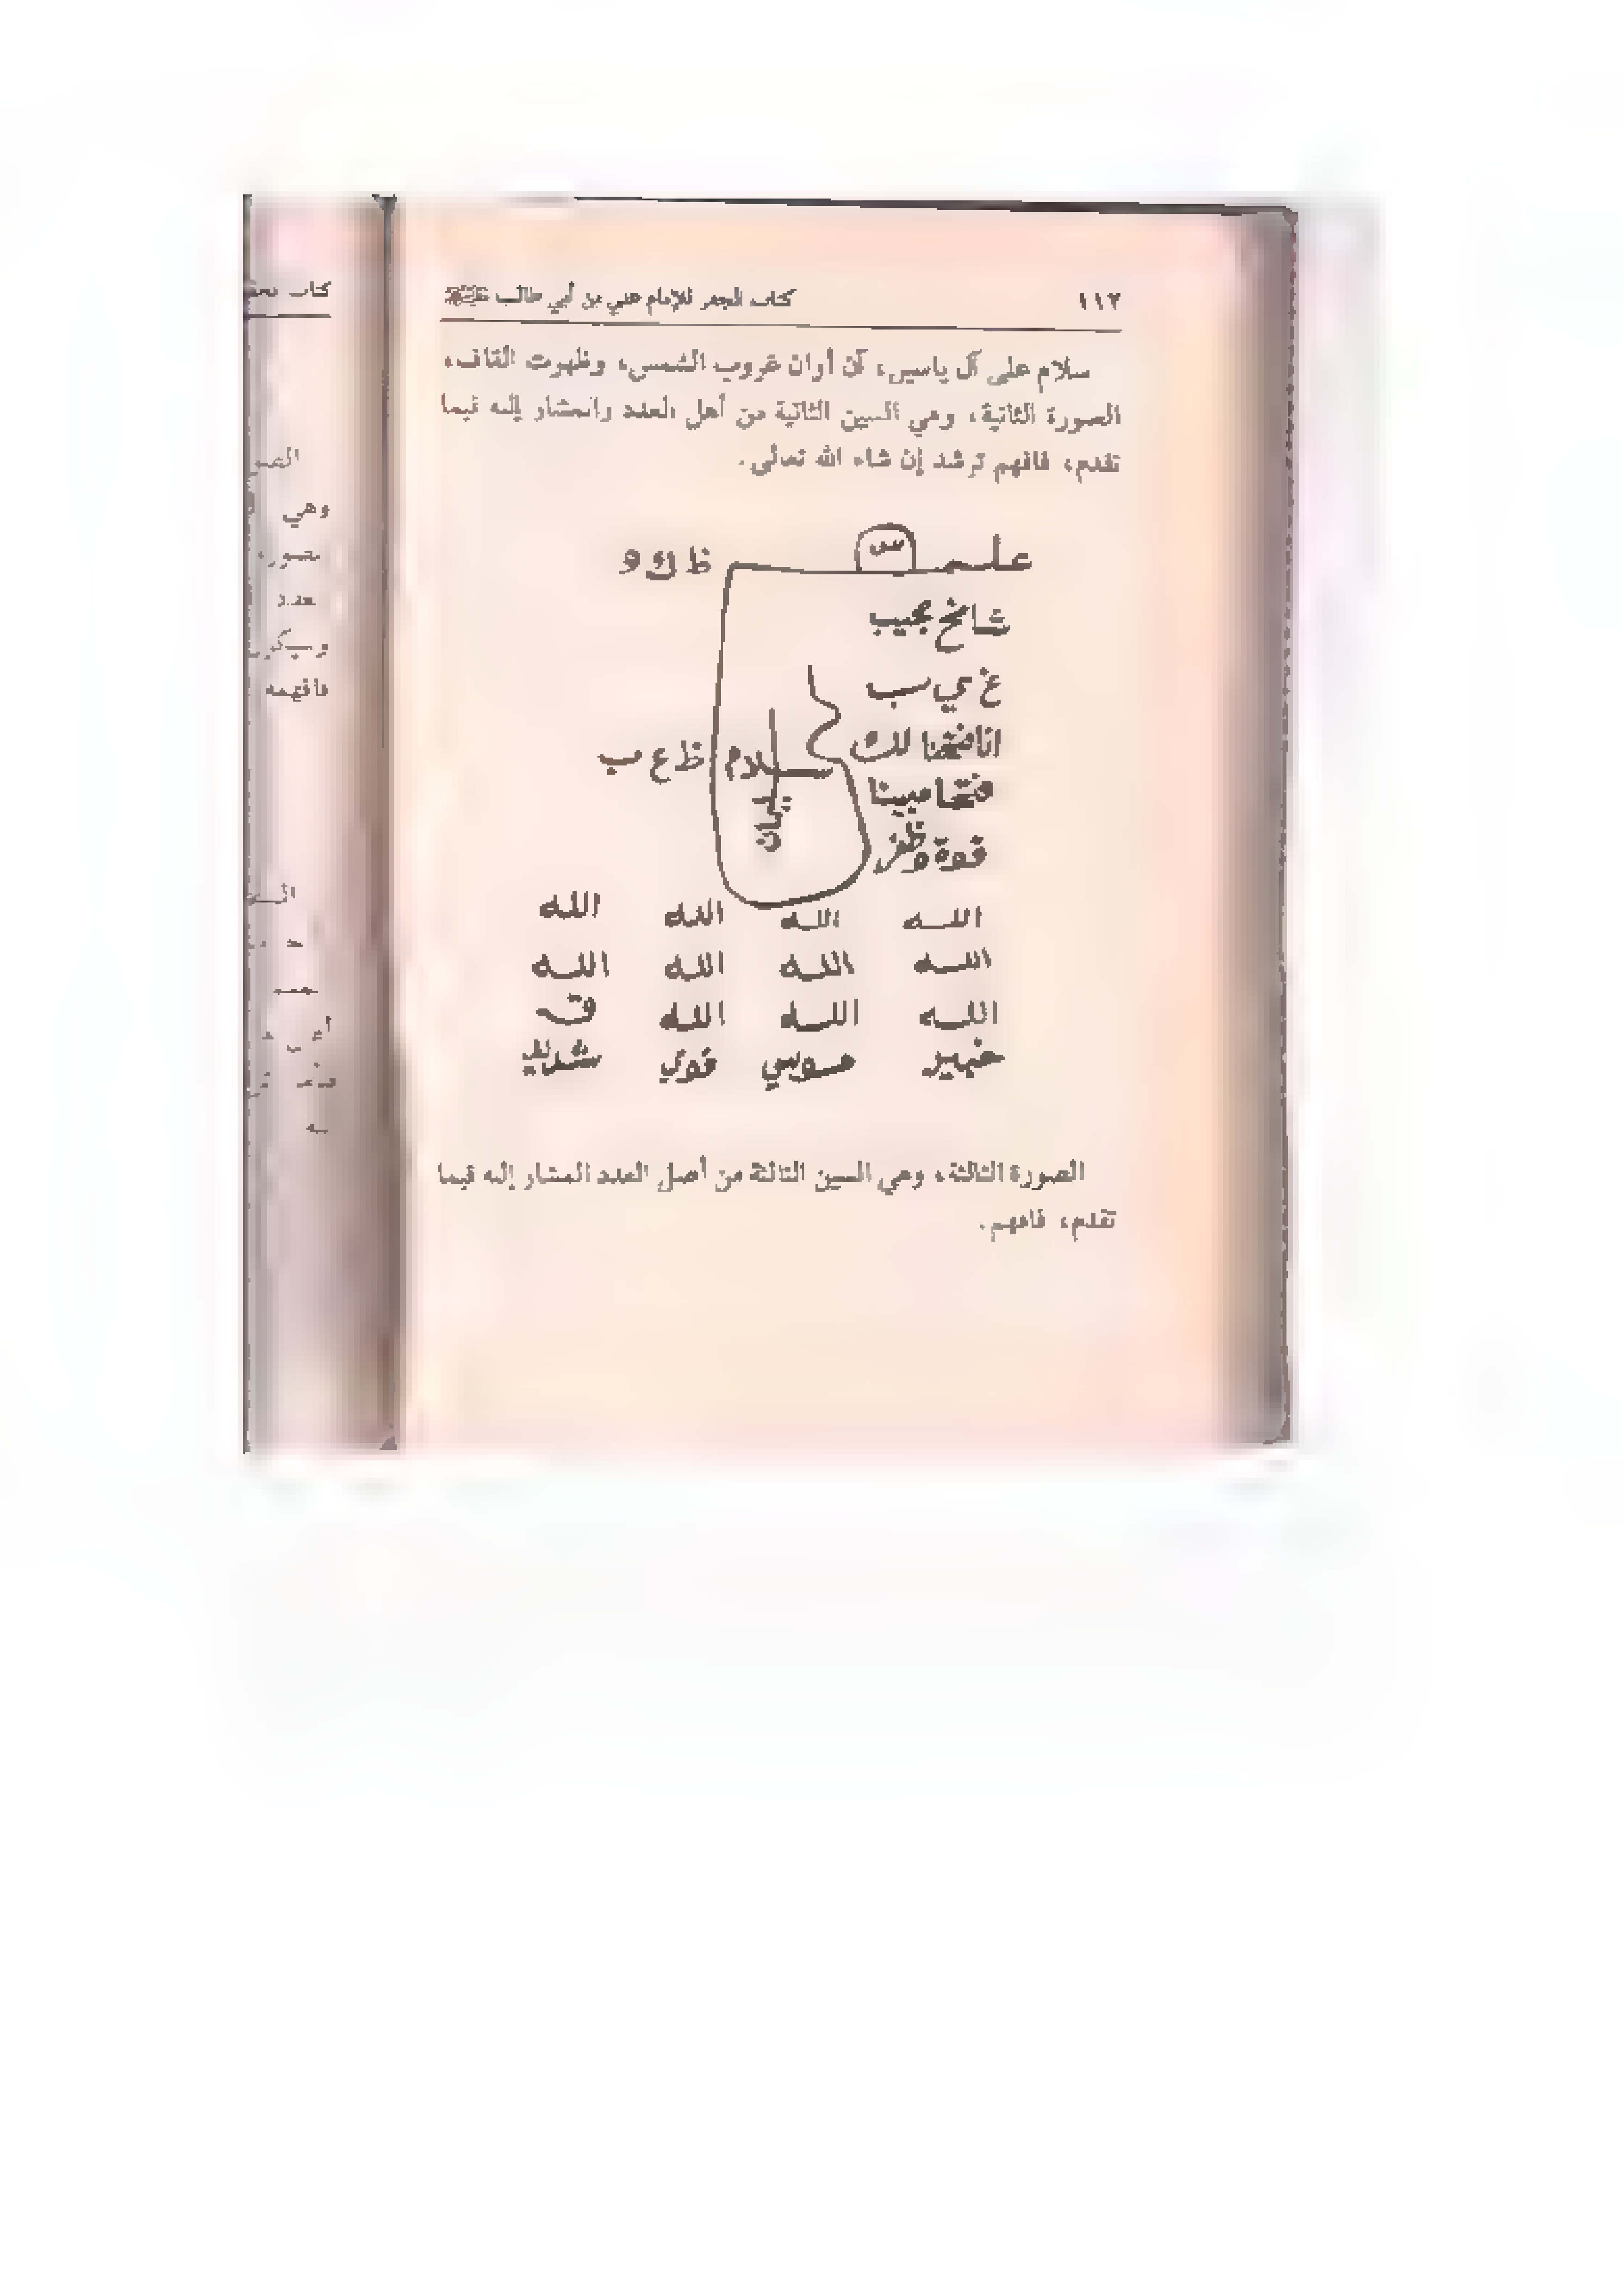 ١١٢ كتاب الجفر للإمام علي بن أبي طالب
سلام على آل ياسين، آن أوان غروب الشمس، وظهرت القاف،
الصورة الثانية، وهي السين الثانية من أهل العدد والمشار إليه فيما
تقدم، فافهم ترشد إن شاء الله تعالى.
علم س ظ ك و
شامخ مجيب
غ ي ب
انا فتحنا لك
سلام ظ ع ب
فتحا مبينا
قوة وظفر
الله الله الله الله
الله الله الله الله
الله الله الله ق
خبير قوي شديد
الصورة الثالثة، وهي السين الثالثة من أصل العدد المشار إليه فيما
تقدم، فافهم.
كتاب
وهي
عدد
فافهمه